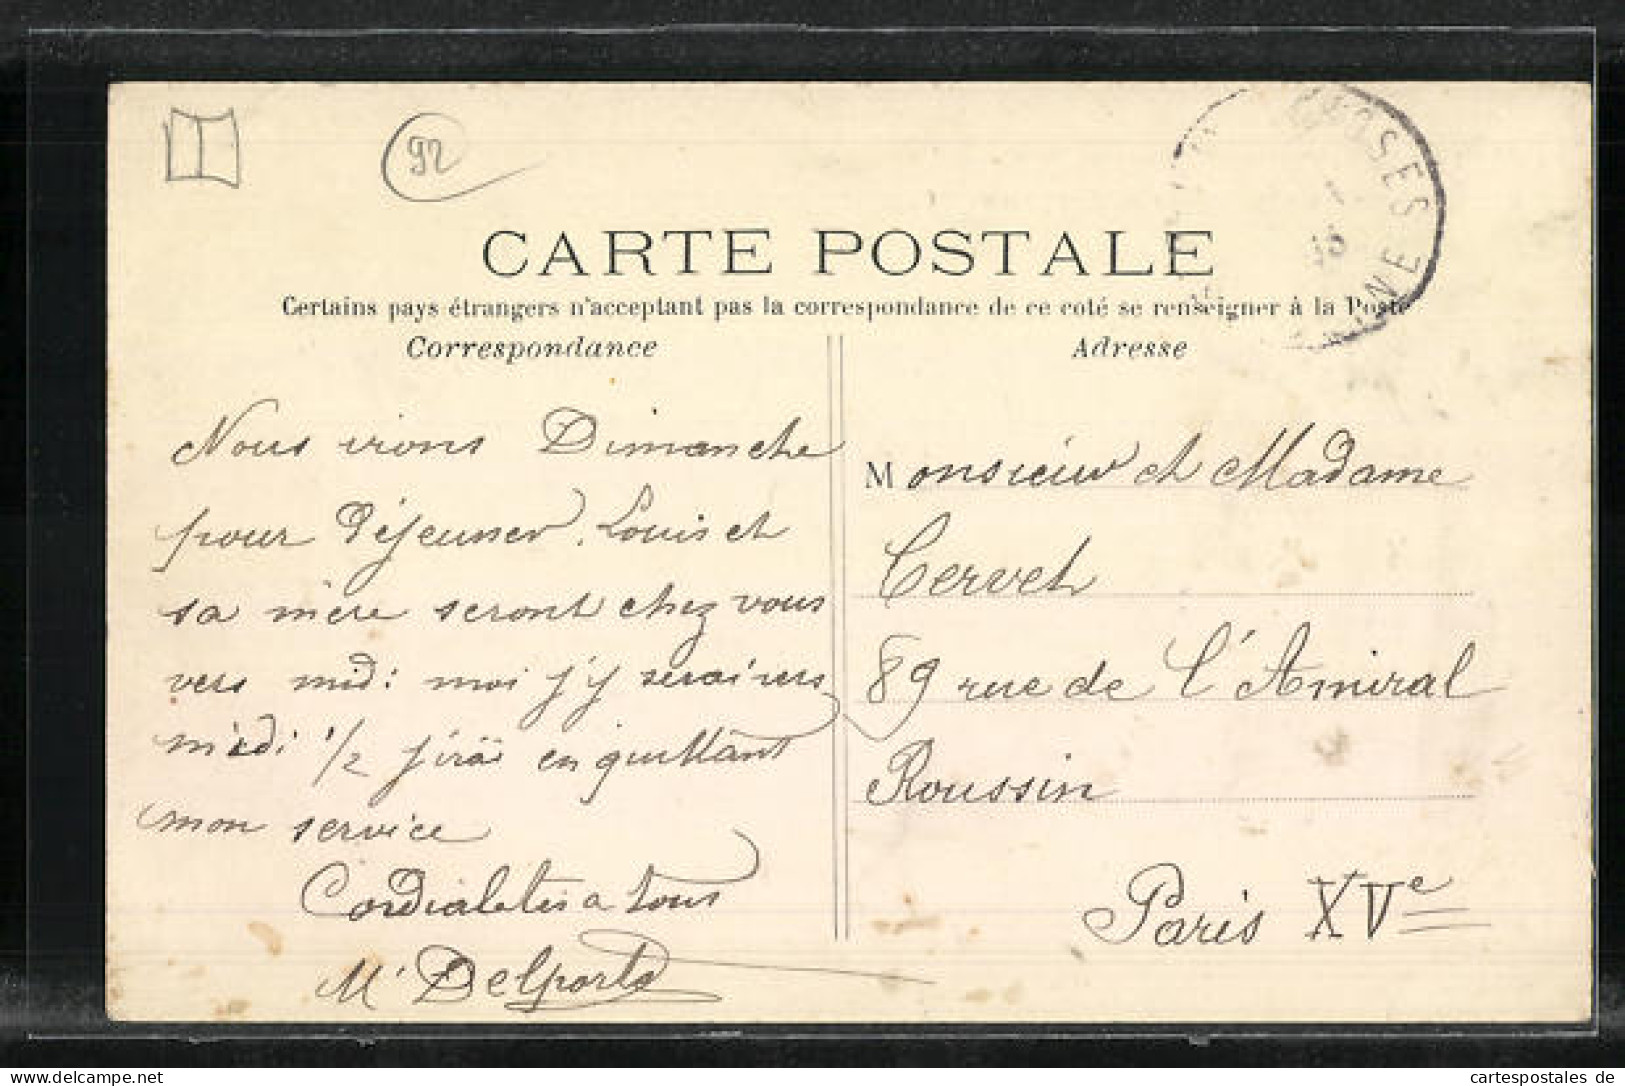 92
CARTE POSTALE
Certains pays étrangers n'acceptant pas la correspondance de ce coté se renseigner à la Poste
Correspondance
Nous irons Dimanche
pour déjeuner. Louis et
sa mère seront chez vous
vers midi moi j'y serai vers
midi 1/2 j'irai en quittant
mon service
Cordialités a tous
M Delporte
Adresse
Monsieur et Madame
Cervet
89 rue de l'Amiral
Roussin
Paris XVe
www.delcampe.net
cartespostales de